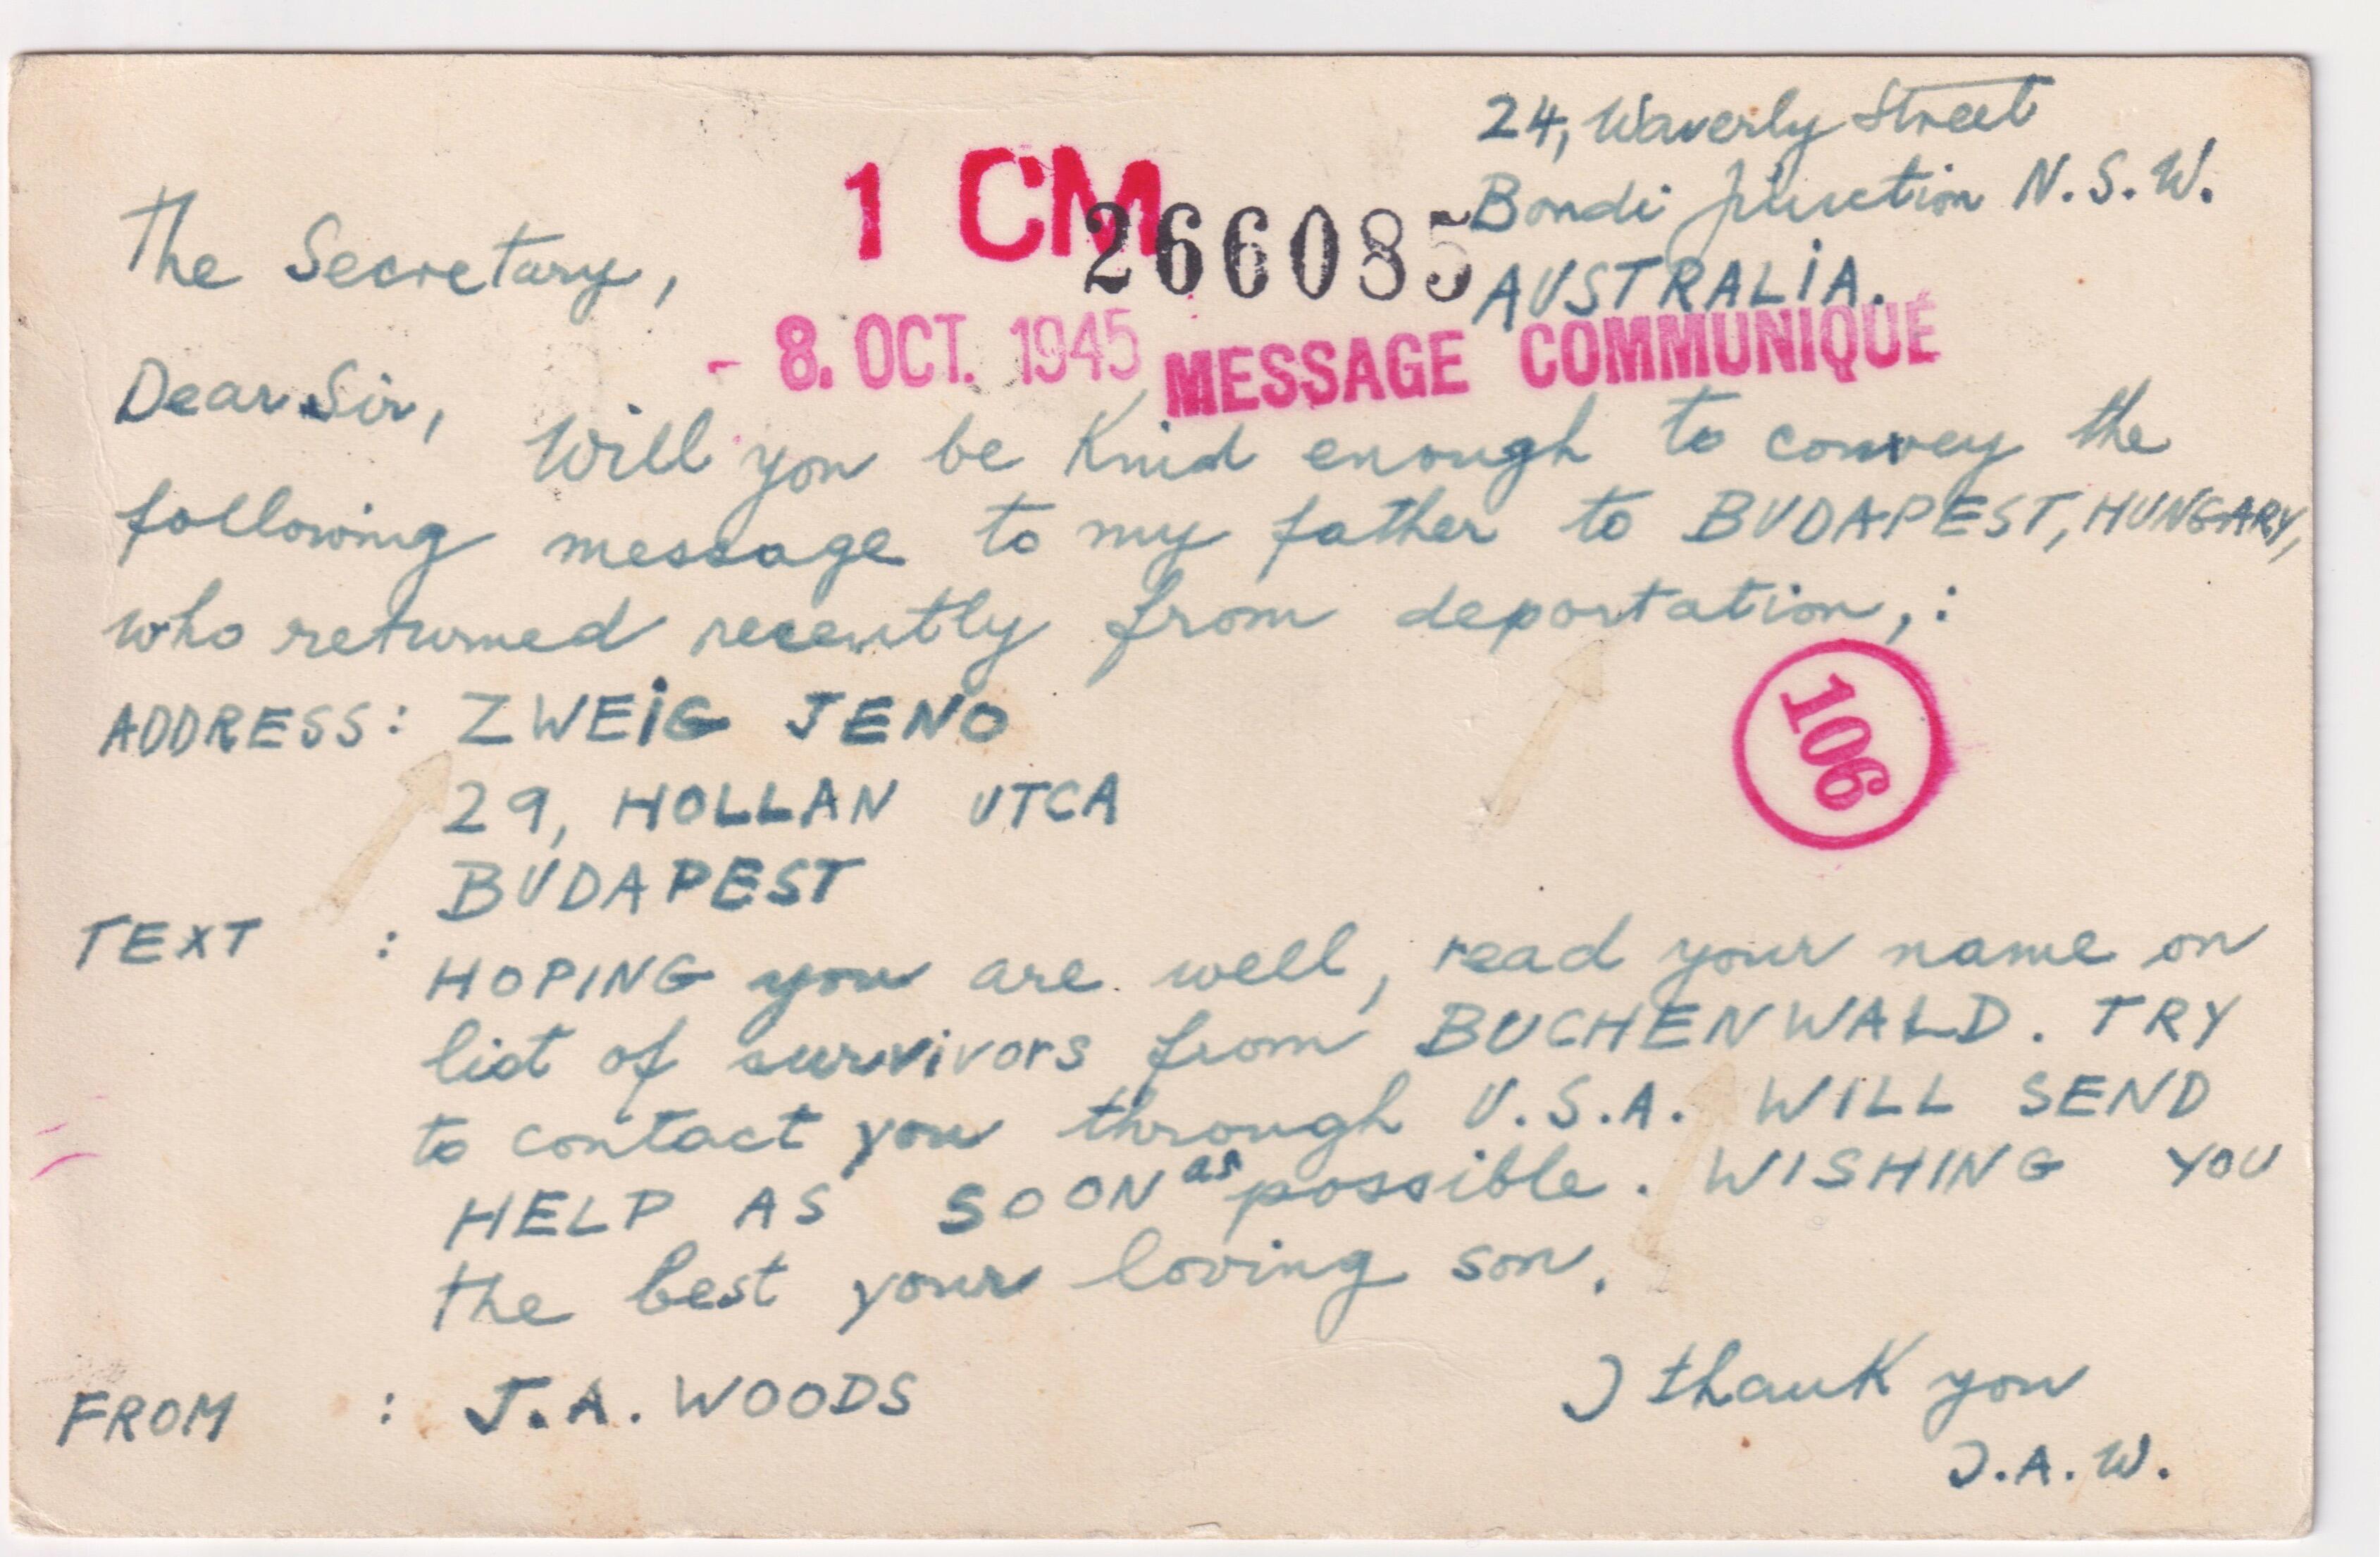 24, Waverly Street
Bondi Junction N.S.W.
AUSTRALIA.
1 CM
266085
The Secretary,
- 8. OCT. 1945
MESSAGE COMMUNIQUÉ
Dear Sir,
Will you be Kind enough to convey the
following message to my father to BUDAPEST, HUNGARY,
who returned recently from deportation,:
106
ADDRESS: ZWEIG JENO
29, HOLLAN UTCA
BUDAPEST
TEXT :
HOPING you are well, read your name on
list of survivors from BUCHENWALD. TRY
to contact you through U.S.A. WILL SEND
HELP AS SOON as possible. WISHING YOU
the best your loving son.
I thank you
J.A.W.
FROM : J.A. WOODS